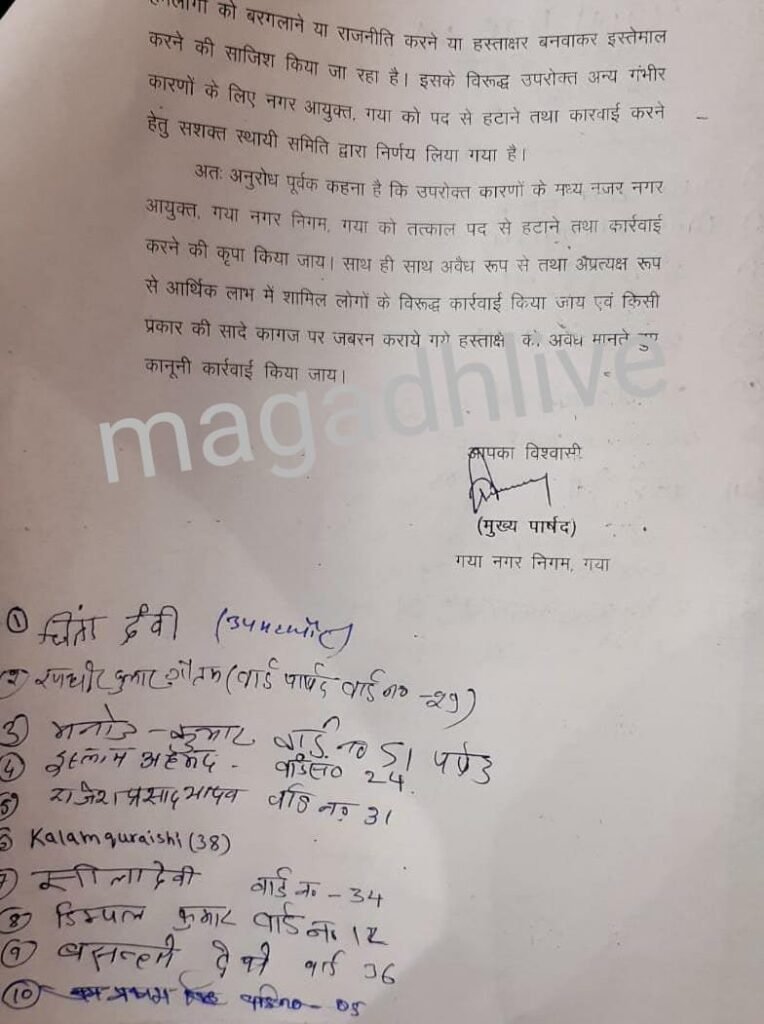 को बरगलाने या राजनीति करने या हस्ताक्षर बनवाकर इस्तेमाल
करने की साजिश किया जा रहा है। इसके विरूद्ध उपरोक्त अन्य गंभीर
कारणों के लिए नगर आयुक्त, गया को पद से हटाने तथा कारवाई करने
हेतु सशक्त स्थायी समिति द्वारा निर्णय लिया गया है।
अतः अनुरोध पूर्वक कहना है कि उपरोक्त कारणों के मध्य नजर नगर
आयुक्त, गया नगर निगम, गया को तत्काल पद से हटाने तथा कार्रवाई
करने की कृपा किया जाय। साथ ही साथ अवैध रूप से तथा अप्रत्यक्ष रूप
से आर्थिक लाभ में शामिल लोगों के विरूद्ध कार्रवाई किया जाय एवं किसी
प्रकार की सादे कागज पर जबरन कराये गये को अवैध मानते हुए
कानूनी कार्रवाई किया जाय।
magadhlive
आपका विश्वासी
(मुख्य पार्षद)
गया नगर निगम, गया
① चिंता देवी
रणधीर कुमार गौतम (वार्ड पार्षद वार्ड न० -29)
3) मनोज - कुमार वार्ड न० 51
4 इसलाम अहमद - वार्ड स० 24
5 राजेश प्रसाद यादव वार्ड न० 31
6 Kalam quraishi (38)
7 शीला देवी वार्ड न० - 34
8 डिम्पल कुमार वार्ड न० 12
9 बसन्ती देवी वार्ड 36
10 वार्ड न० - 05